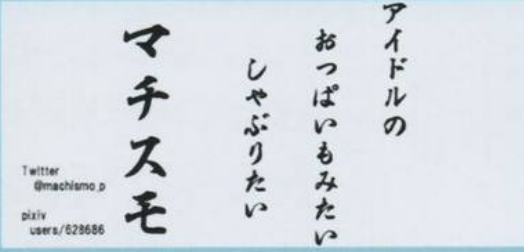 アイドルの
おっぱいもみたい
しゃぶりたい
マチスモ
Twitter
@machismo_p
pixiv
users/628686